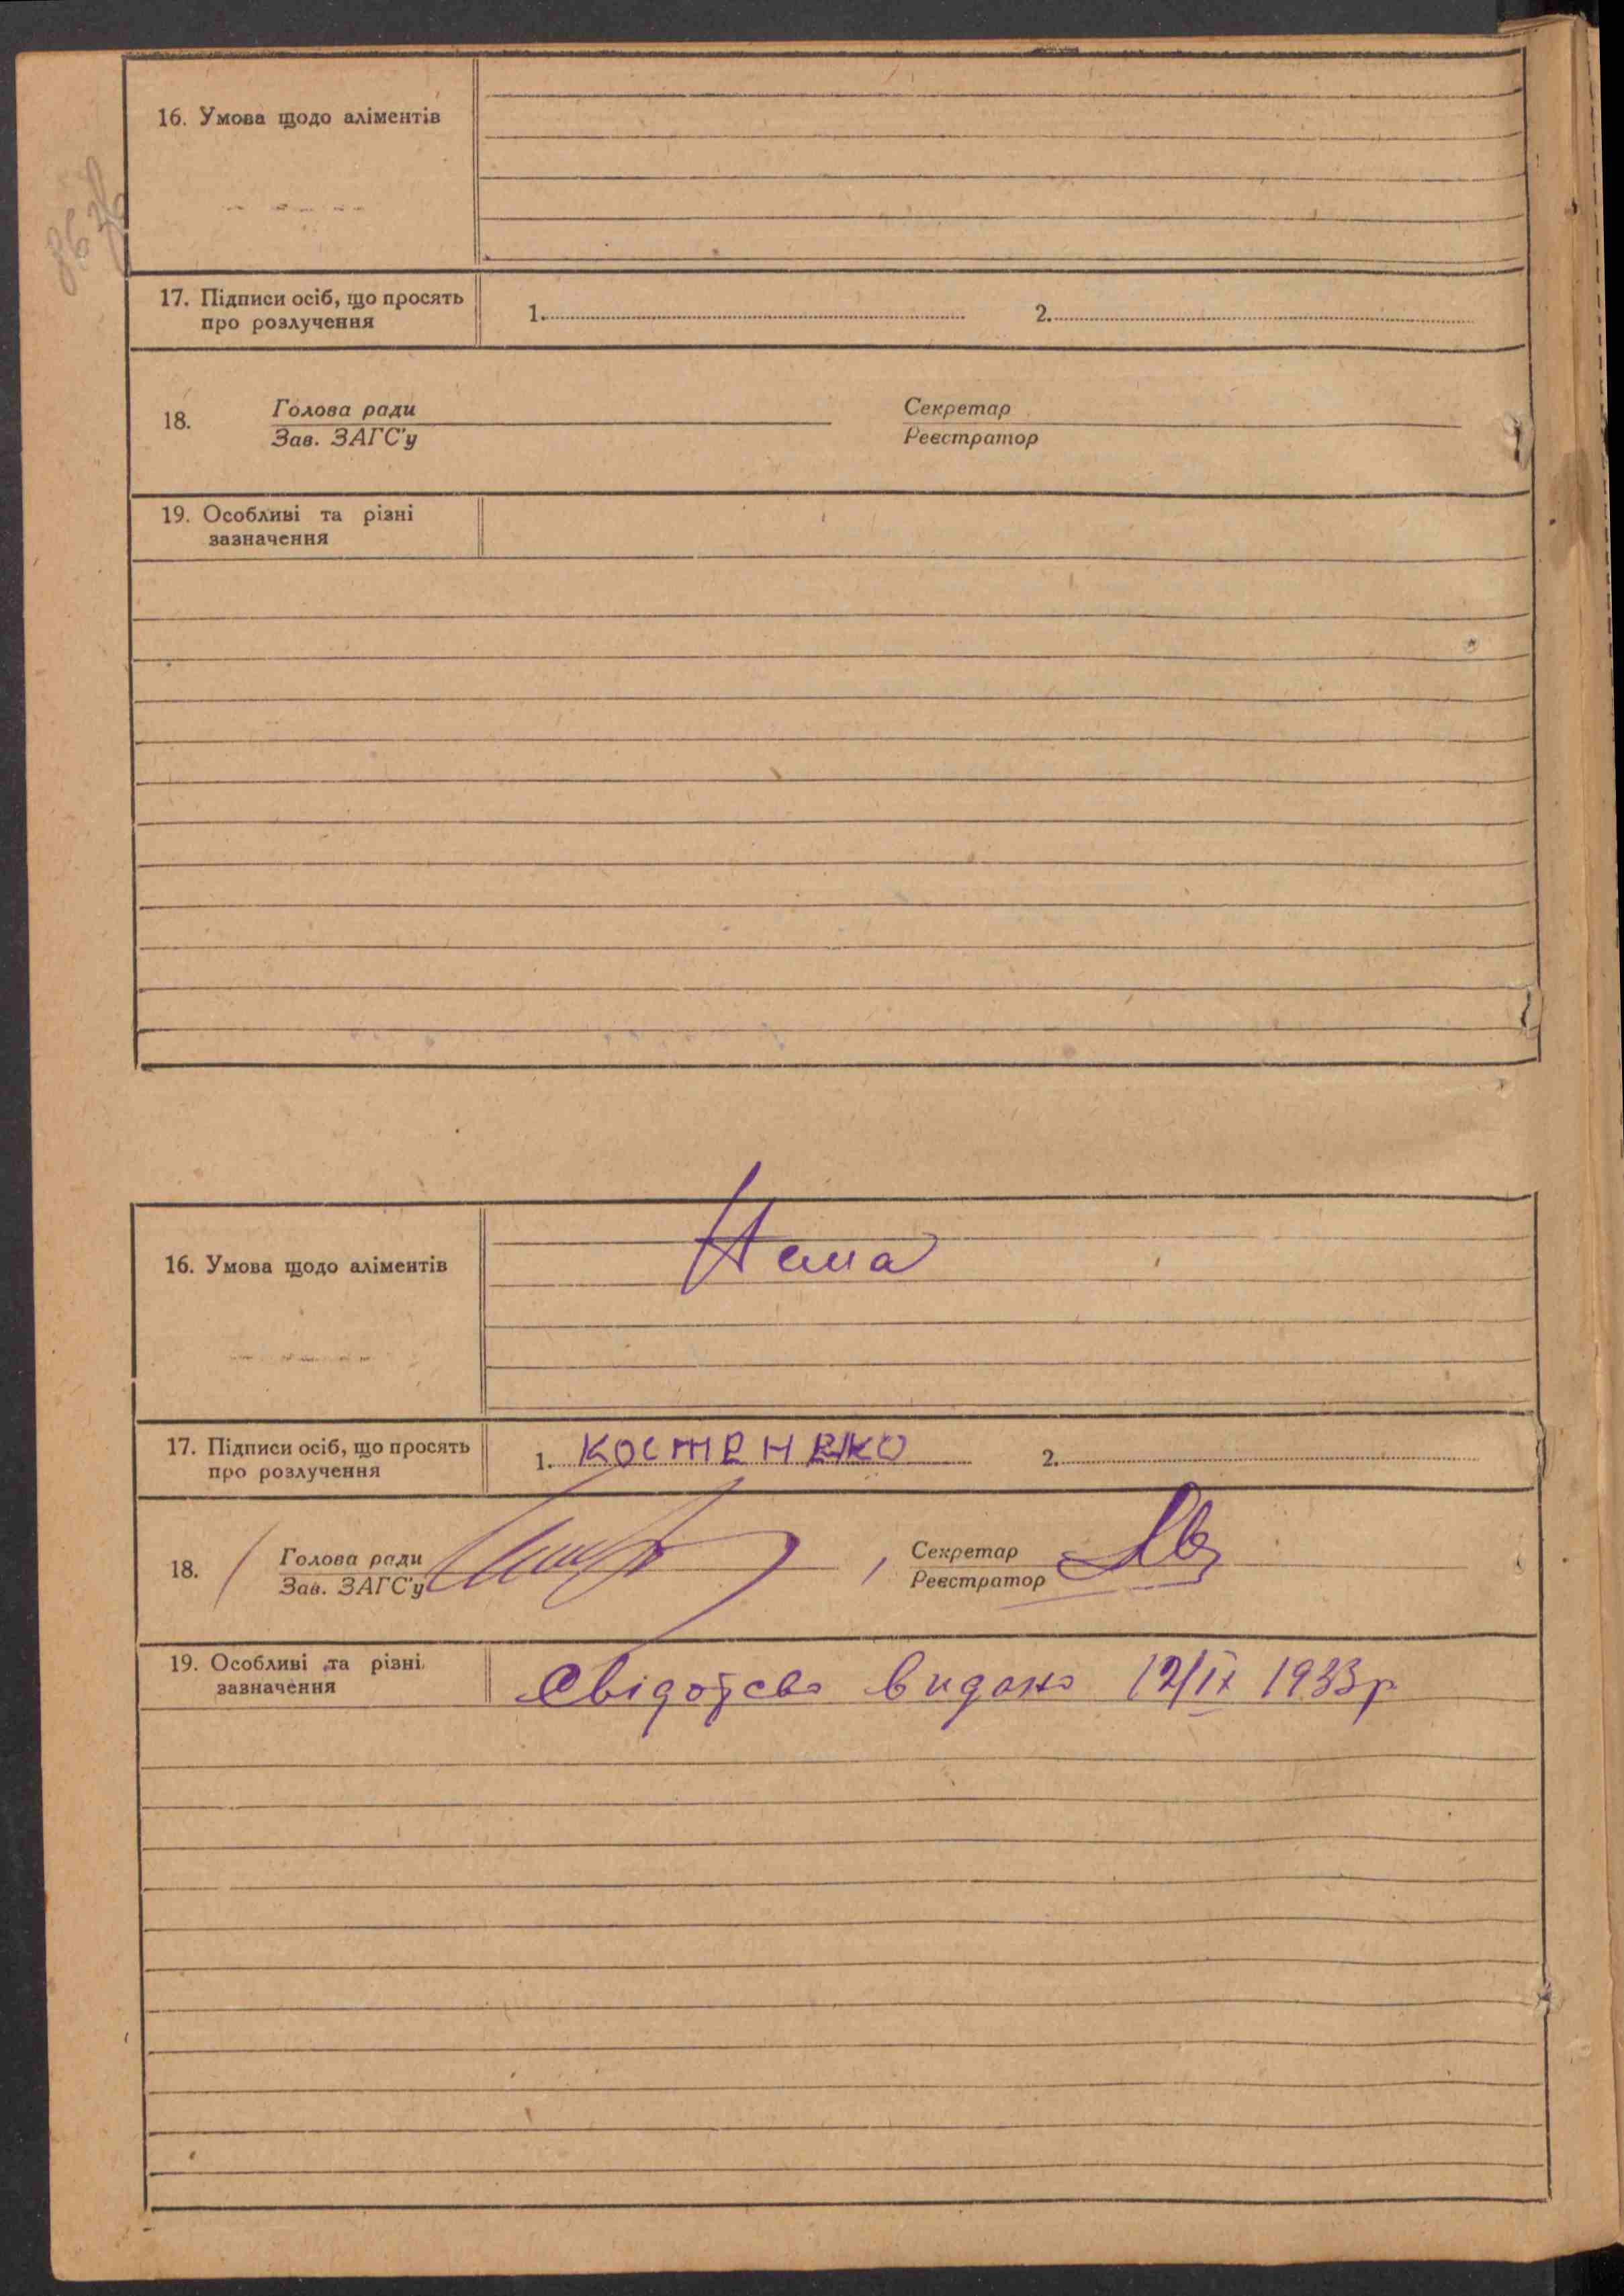 16. Умова щодо аліментів
17. Підписи осіб, що просять
про розлучення
1.
2.
18.
Голова ради
Зав. ЗАГС'у
Секретар
Реєстратор
19. Особливі та різні
зазначення
16. Умова щодо аліментів
Нема
17. Підписи осіб, що просять
про розлучення
1. КОСТЕНЕКО
2.
18.
Голова ради
Зав. ЗАГС'у
Секретар
Реєстратор
19. Особливі та різні
зазначення
Свідоцтво видано 12/IX 1933р